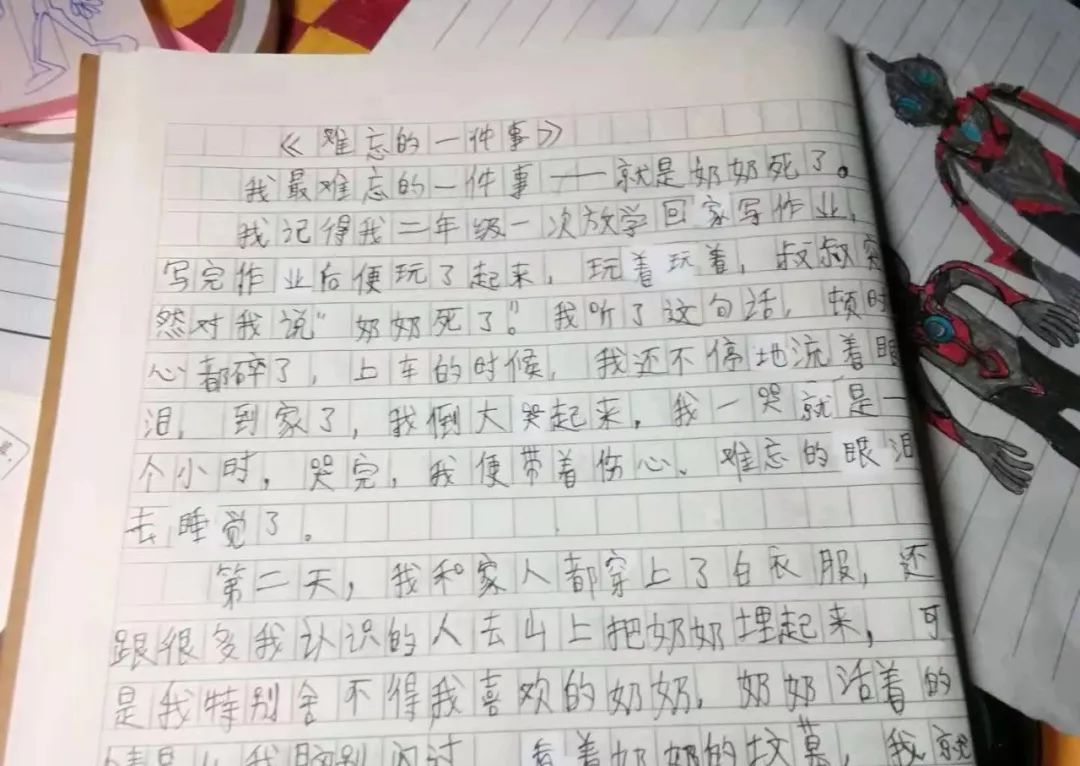 《难忘的一件事》
我最难忘的一件事——就是奶奶死了。
我记得我二年级一次放学回家写作业,
写完作业后便玩了起来,玩着玩着,叔叔突
然对我说"奶奶死了。"我听了这句话,顿时
心都碎了,上车的时候,我还不停地流着眼
泪,到家了,我倒大哭起来,我一哭就是一
个小时,哭完,我便带着伤心、难忘的眼泪
去睡觉了。
第二天,我和家人都穿上了白衣服,还
跟很多我认识的人去山上把奶奶埋起来,可
是我特别舍不得我喜欢的奶奶,奶奶活着的
我 闪过 看着奶奶的坟墓,我就